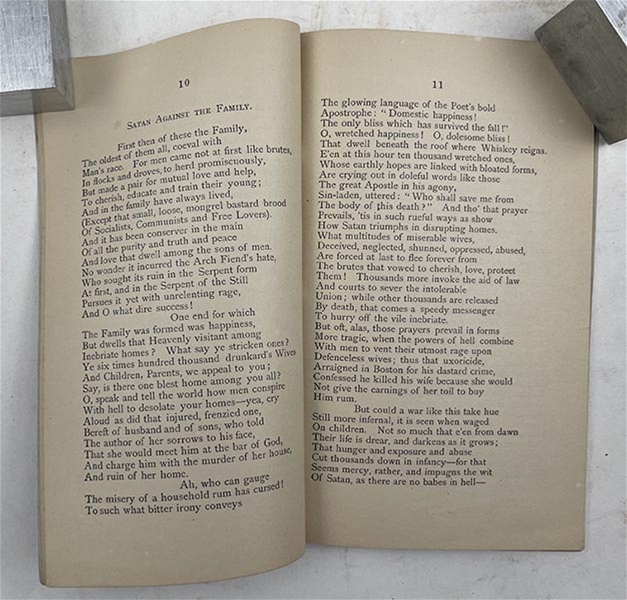 10
SATAN AGAINST THE FAMILY.
First then of these the Family,
The oldest of them all, coeval with
Man's race. For men came not at first like brutes,
In flocks and droves, to herd promiscuously,
But made a pair for mutual love and help,
To cherish, educate and train their young;
And in the family have always lived,
(Except that small, loose, mongrel bastard brood
Of Socialists, Communists and Free Lovers).
And it has been conserver in the main
Of all the purity and truth and peace
And love that dwell among the sons of men.
No wonder it incurred the Arch Fiend's hate,
Who sought its ruin in the Serpent form
At first, and in the Serpent of the Still
Pursues it yet with unrelenting rage,
And O what dire success!
One end for which
The Family was formed was happiness,
But dwells that Heavenly visitant among
Inebriate homes? What say ye stricken ones?
Ye six times hundred thousand drunkard's Wives
And Children, Parents, we appeal to you;
Say, is there one blest home among you all?
O, speak and tell the world how men conspire
With hell to desolate your homes—yea, cry
Aloud as did that injured, frenzied one,
Bereft of husband and of sons, who told
The author of her sorrows to his face,
That she would meet him at the bar of God,
And charge him with the murder of her house,
And ruin of her home.
Ah, who can gauge
The misery of a household rum has cursed!
To such what bitter irony conveys
11
The glowing language of the Poet's bold
Apostrophe: "Domestic happiness!
The only bliss which has survived the fall!"
O, wretched happiness! O, dolesome bliss!
That dwell beneath the roof where Whiskey reigns.
E'en at this hour ten thousand wretched ones,
Whose earthly hopes are linked with bloated forms,
Are crying out in doleful words like those
The great Apostle in his agony,
Sin-laden, uttered: "Who shall save me from
The body of this death?" And tho' that prayer
Prevails, 'tis in such rueful ways as show
How Satan triumphs in disrupting homes.
What multitudes of miserable wives,
Deceived, neglected, shunned, oppressed, abused,
Are forced at last to flee forever from
The brutes that vowed to cherish, love, protect
Them! Thousands more invoke the aid of law
And courts to sever the intolerable
Union; while other thousands are released
By death, that comes a speedy messenger
To hurry off the vile inebriate.
But oft, alas, those prayers prevail in forms
More tragic, when the powers of hell combine
With men to vent their utmost rage upon
Defenceless wives; thus that uxoricide,
Arraigned in Boston for his dastard crime,
Confessed he killed his wife because she would
Not give the earnings of her toil to buy
Him rum.
But could a war like this take hue
Still more infernal, it is seen when waged
On children. Not so much that e'en from dawn
Their life is drear, and darkens as it grows;
That hunger and exposure and abuse
Cut thousands down in infancy—for that
Seems mercy, rather, and impugns the wit
Of Satan, as there are no babes in hell—